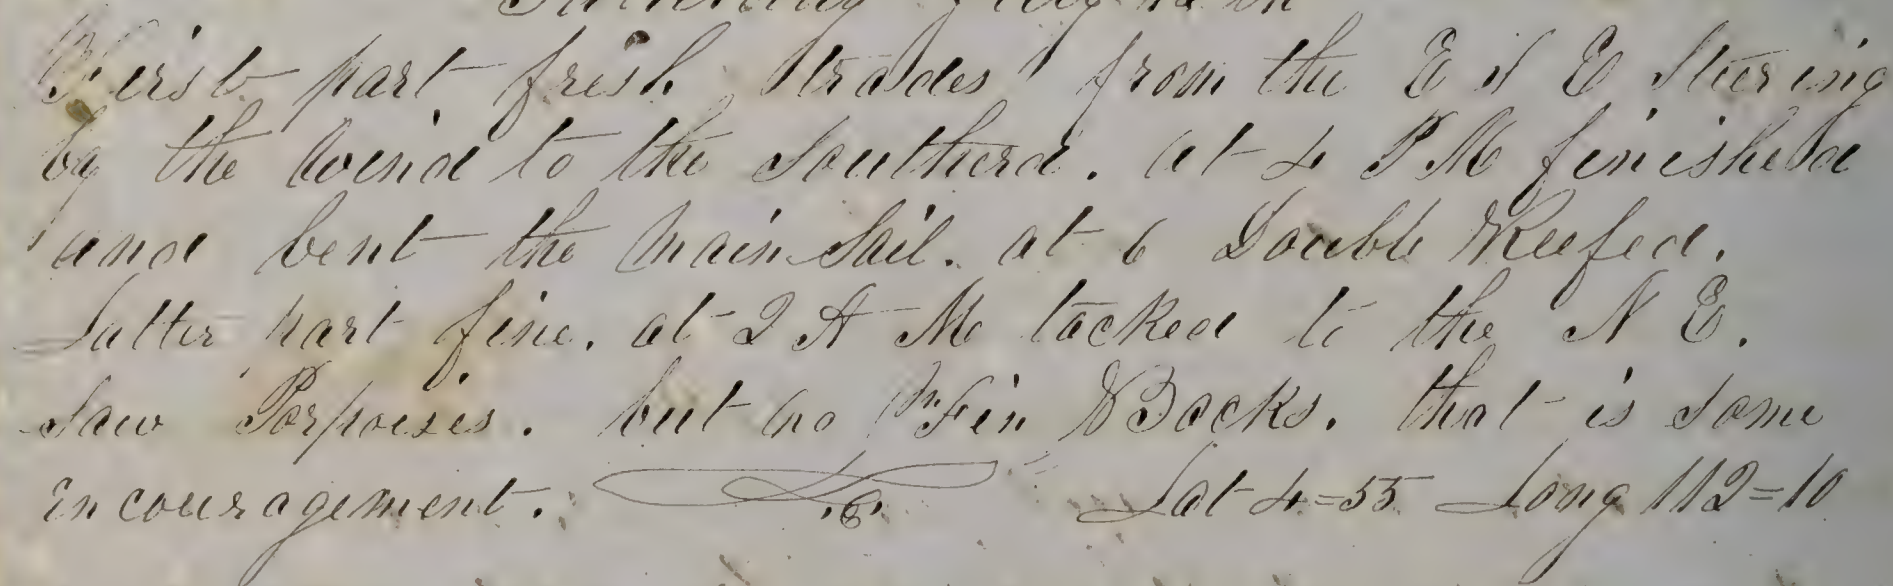 First part fresh trades from the E N E Steering
by the wind to the Southerd. at 4 P M finished
and bent the Main Sail. at 6 Double Reefed.
Latter part fine. at 2 A M tacked to the N E.
Saw Porpoises. but no Fin Backs. that is some
encouragement. Lat 4=55 Long 112=10